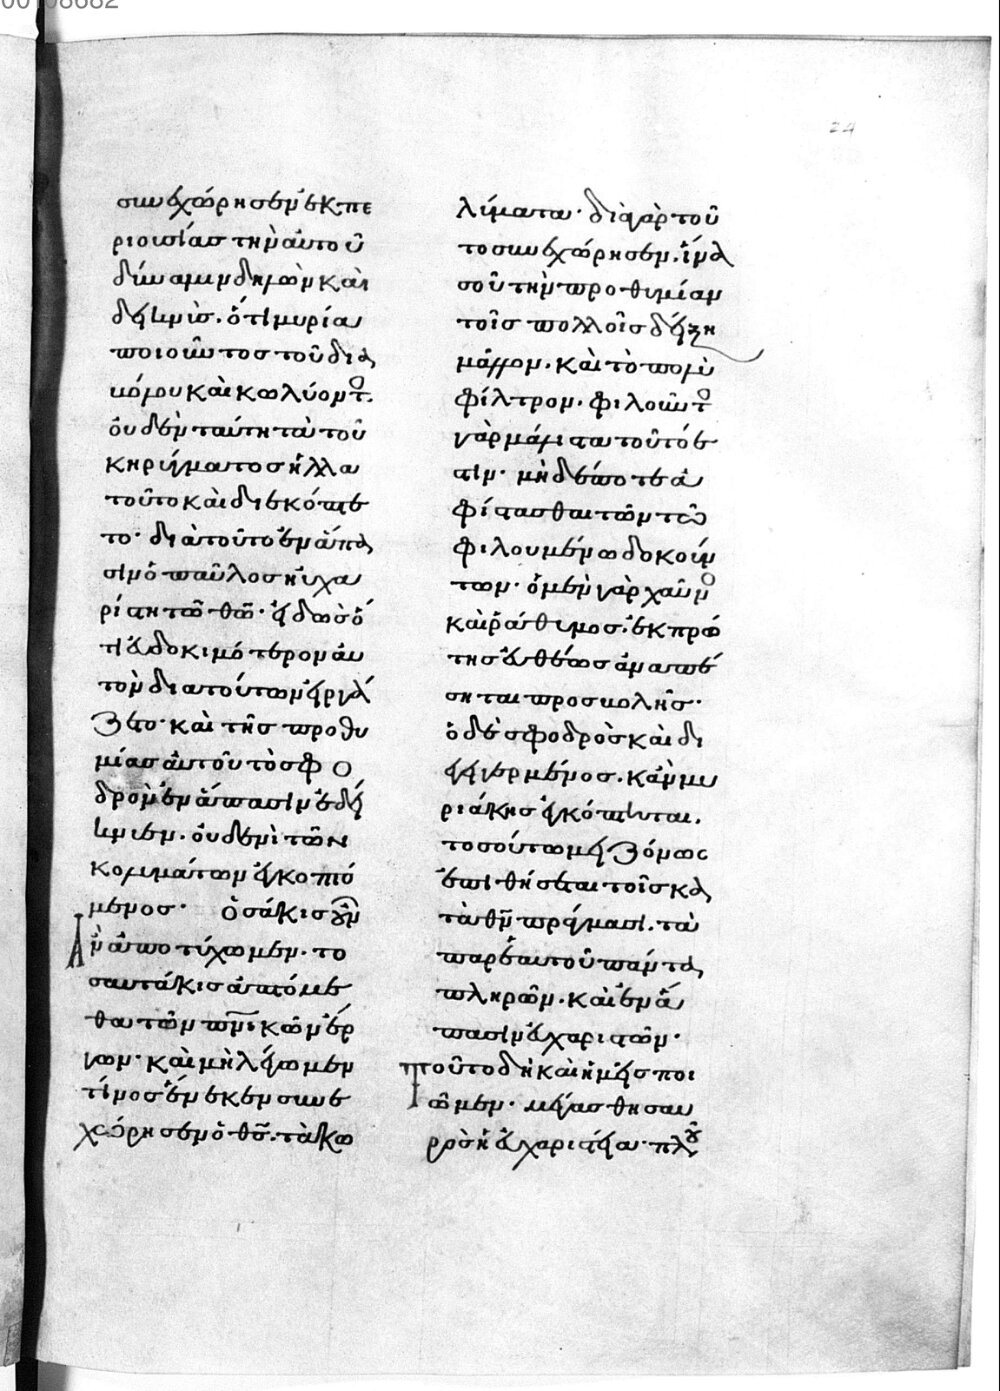 00108682
24
συνεχώρησεν ἐκ πε
ριουσίας τὴν αὐτοῦ
δύναμιν δηλῶν καὶ
δεικνὺς. ὅτι μυρία
ποιοῦντος τοῦ δια
βόλου καὶ κωλύοντ(ο).
οὐδὲν ταύτη τὰ τοῦ
κηρύγματος ἠλλα
τοῦτο καὶ διεκόπτε
το· διὰ τοῦτο ἐν ἅπα
σιν ὁ παῦλος ηὐχα
ρίστη τῶ θῶ· εἰδὼς ὅ
τι εὐδοκιμότερον αὐ
τὸν διὰ τούτων εἰργά
ζετο· καὶ τῆς προθυ
μίας αὐτοῦ τὸ σφο
δρὸν ἐν ἅπασιν ἐδεί
κνυεν. οὐδενὶ τῶν
κωλυμάτων ἐγκοπτό
μενος· ὁσάκις οὖν
ἂν ἀποτύχωμεν. το
σαυτάκις ἁπτόμε
θα τῶν πνικῶν ἔρ
γων· καὶ μὴ λέγωμεν
τίνος ἕνεκεν συνε
χώρησεν ὁ θς. τὰ κω
λύματα· διὰ γὰρ τοῦ
το συνεχώρησεν. ἵνα
σοῦ τὴν προθυμίαν
τοῖς πολλοῖς δείξη
μᾶλλον. καὶ τὸ πολὺ
φίλτρον. φιλοῦντ(ο)
γὰρ μάλιστα τοῦτό ἐ
στιν· μηδέποτε ἀ
φίστασθαι τῶν τῶ
φιλουμένω δοκούν
των· ὁ μὲν γὰρ χαῦνο
καὶ ῥάθυμος. ἐκ πρώ
της εὐθέως ἀναπε
σῆται προσβολῆς·
ὁ δὲ σφοδρὸς καὶ δι
εγηγερμένος. κἂν μυ
ριάκις ἐγκόπτηται.
τοσούτω μειζόνως
ἐπιθήσεται τοῖς κα
τὰ θν πράγμασι. τὰ
παρ' ἑαυτοῦ πάντα
πληρῶν. καὶ ἐν ἅ
πασιν εὐχαριστῶν·
τοῦτο δὴ καὶ ἡμεῖς ποι
ῶμεν· μέγας θησαυ
ρὸς ἡ εὐχαριστεία· πλου